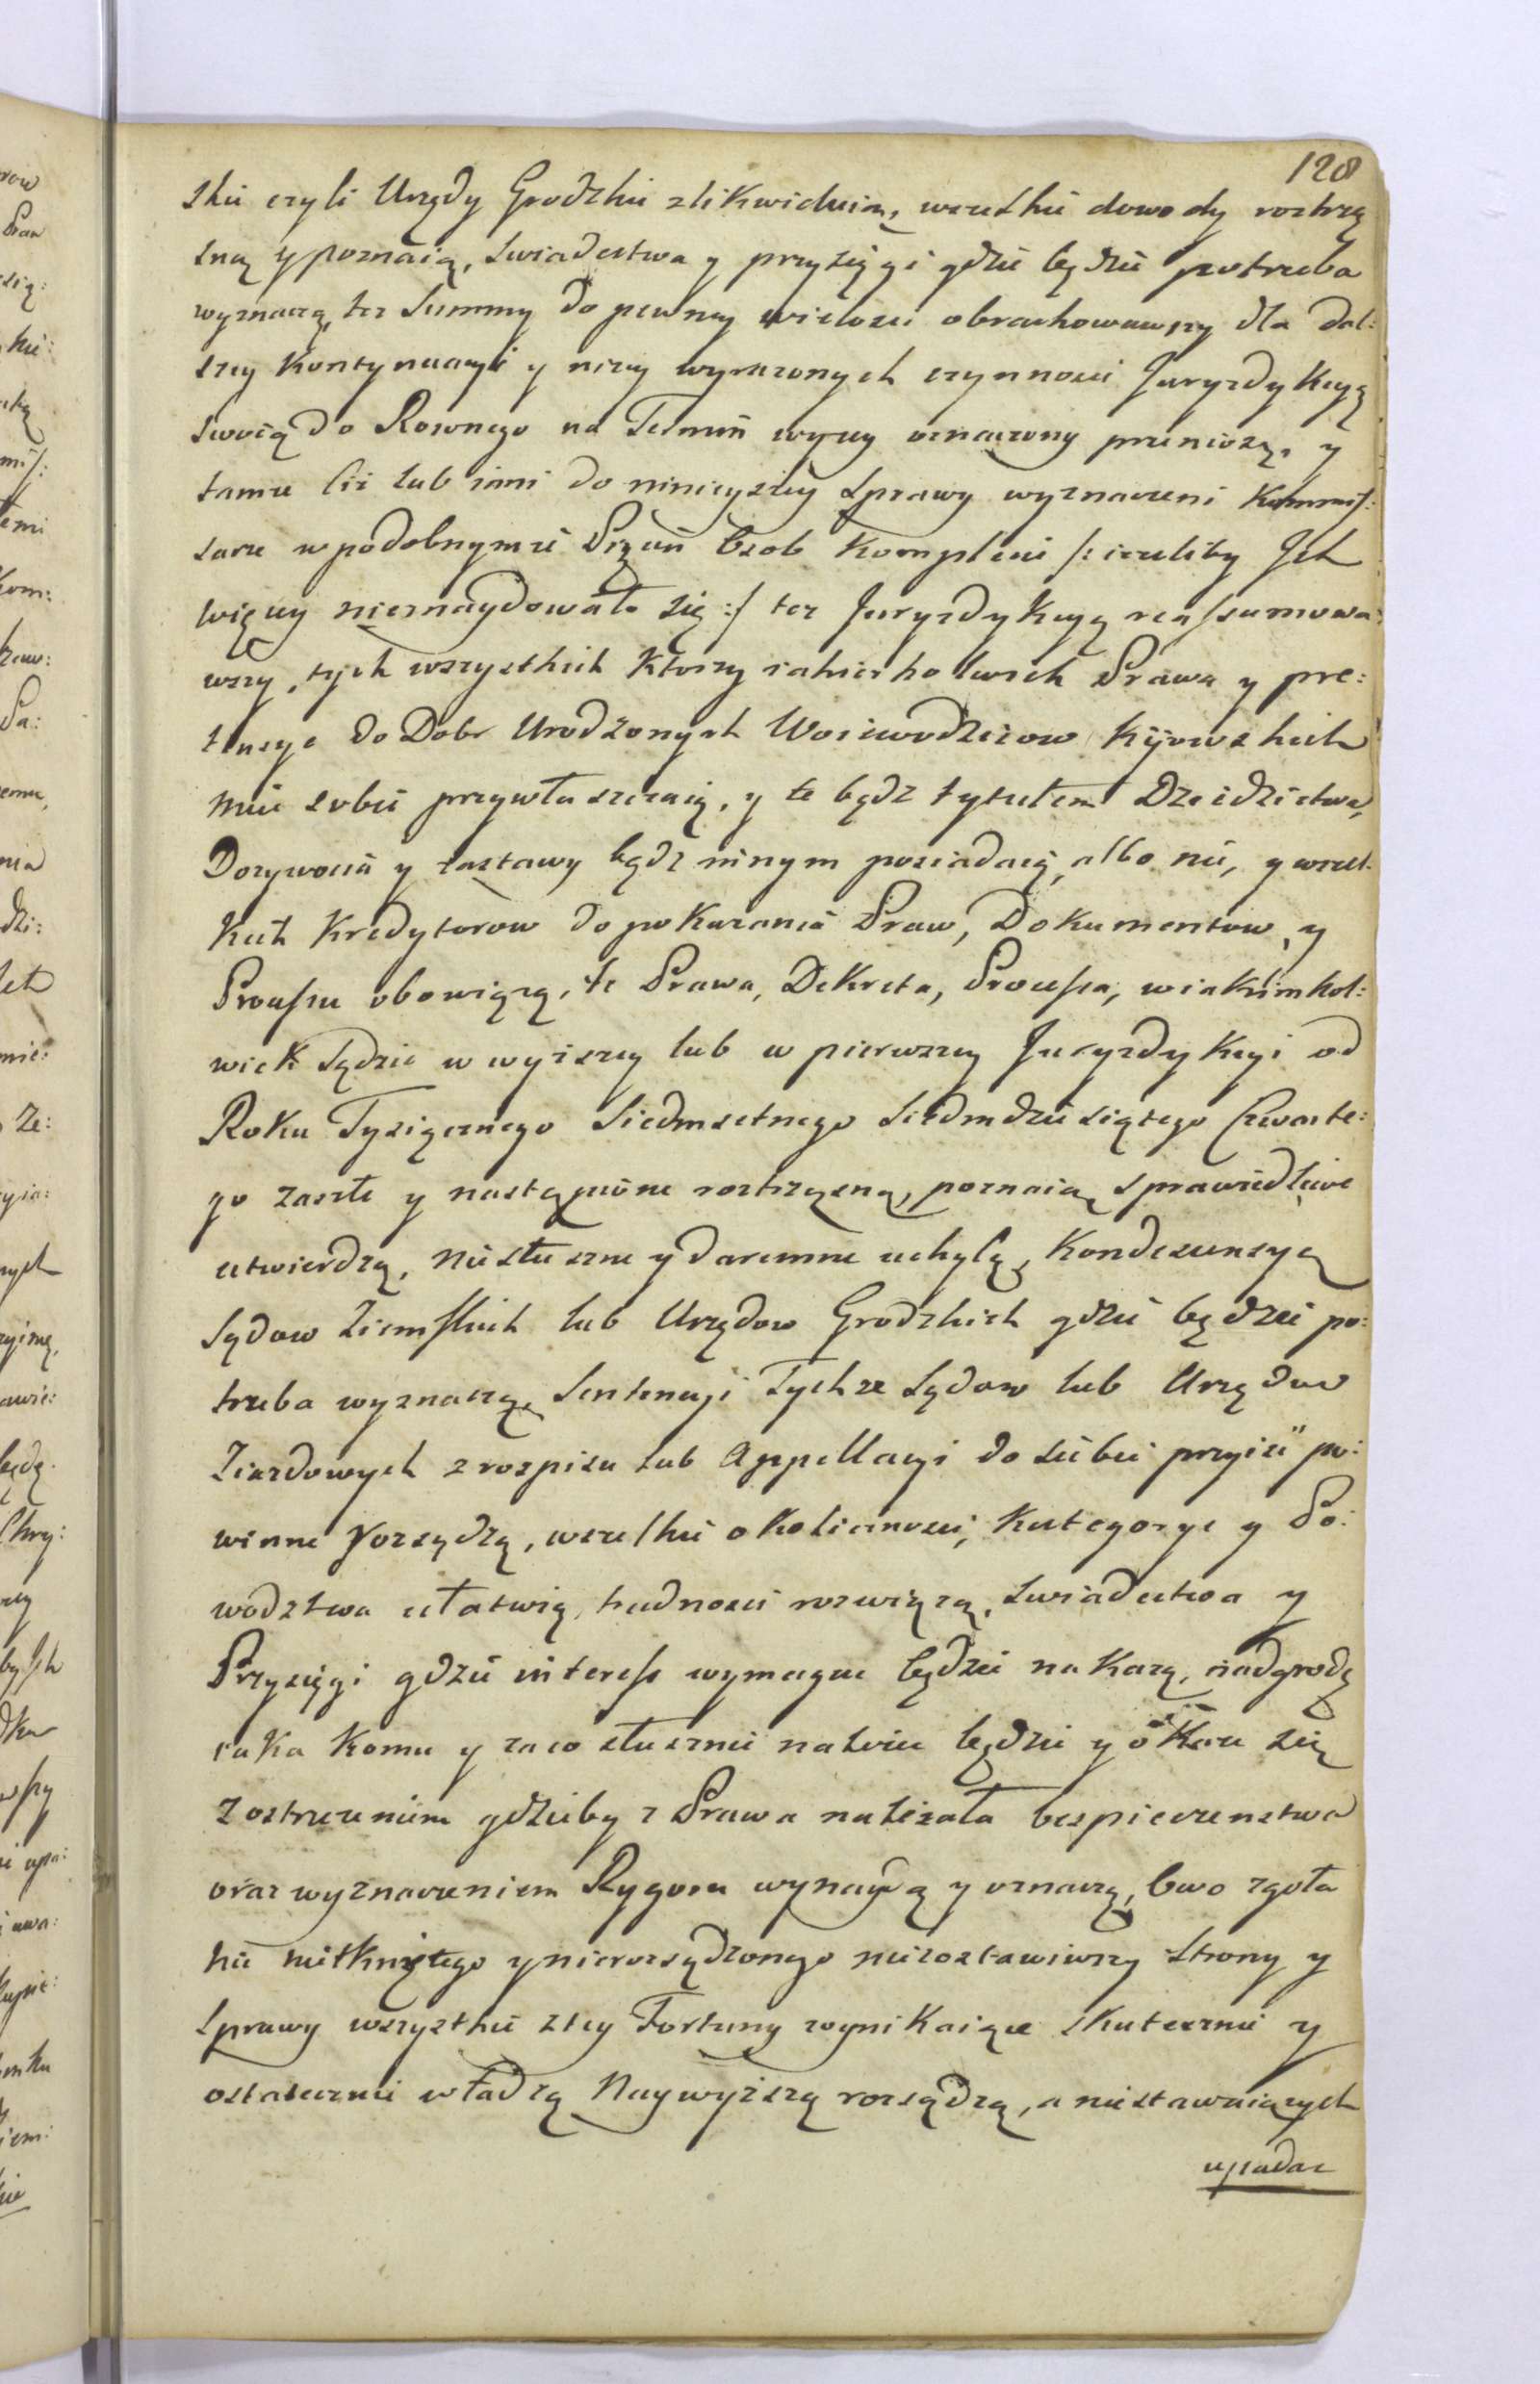 128
skie czyli Urzędy Grodzkie zlikwiduią, wszelkie dowody roztrzą
sną y poznaią, swiadectwa y przysięgi gdzie będzie potrzeba
wyznaczą, też Summy do pewney wielosci obrachowawszy dla dal:
szey Kontynuacyi y niżey wyrażonych czynnosci Juryzdykcyą
swoią do Rownego na Termin wyżey oznaczony przeniozą, y
tamże Ciż lub inni do ninieyszey Sprawy wyznaczeni Kommis:
sarze w podobnymże Pięciu Osob Komplecie /: iezeliby Jch
więcey nieznaydowało się :/ też Juryzdykcyą reassumowa:
wszy, tych wszystkich Ktorzy iakieżkolwiek Prawa y pre:
tensye do Dobr Urodzonych Woiewodzicow Kijowskich
mieć sobie przywłaszczaią, y te bądz tytułem Dziedzictwa,
Dożywocia y zastawy bądz innym posiadaią, albo nie, y wszel:
kich Kredytorow do pokazania Praw, Dokumentow, y
Processu obowiążą, te Prawa, Dekreta, Processa, w iakimkol:
wiek Sądzie w wyższey lub w pierwszey Juryzdykcyi od
Roku Tysiącznego Siedmsetnego Siedmdziesiątego Czwarte:
go zaszłe y nastąpione roztrząsną, poznaią, sprawiedliwe
utwierdzą, niesłuszne y daremne uchylą, Kondescensye
Sądow Ziemskich lub Urzędow Grodzkich gdzie będzie po:
trzeba wyznaczą, Sentencyi Tychże Sądow lub Urzędow
Ziazdowych z rozpisu lub Appellacyi do siebie przyiść po:
winne rozsądzą, wszelkie okolicznosci, Kategorye y Po:
wodztwa ułatwią, trudnosci rozwiążą, Swiadectwa y
Przysięgi gdzie interess wymagać będzie nakażą, nadgrodę
iaka komu y za co słusznie należeć będzie y o Karze się
z ostrzeżeniem gdzieby z Prawa należała bezpieczenstwa
oraz wyznaczeniem Rygoru wynaydą y oznaczą, Owo zgoła
nic nietkniętego y nierozsądzonego niezostawiwszy Strony y
Sprawy wszystkie z tey Fortuny wynikaiące skutecznie y
ostatecznie władzą Naywyższą rozsądzą, a niestawaiących
upadac